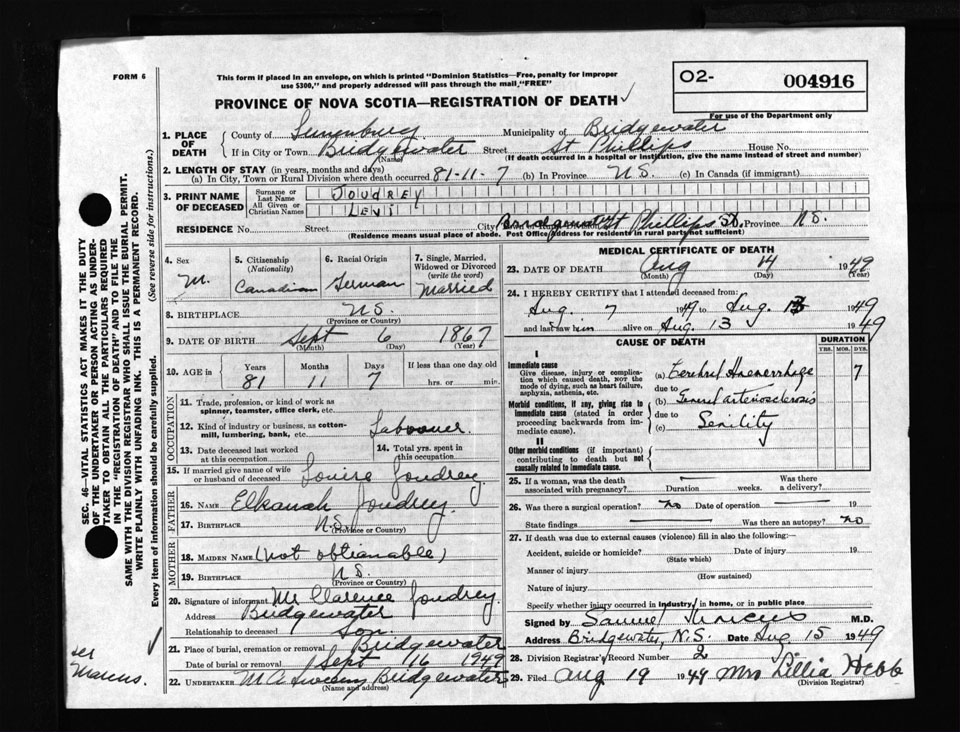 FORM 6
This form if placed in an envelope, on which is printed "Dominion Statistics—Free, penalty for improper
use $300," and properly addressed will pass through the mail, "FREE"
O2- 004916
For use of the Department only
PROVINCE OF NOVA SCOTIA—REGISTRATION OF DEATH
1. PLACE OF DEATH
County of Lunenburg Municipality of Bridgewater
If in City or Town Bridgewater Street St Phillips House No.
(Name) (If death occurred in a hospital or institution, give the name instead of street and number)
2. LENGTH OF STAY (in years, months and days)
(a) In City, Town or Rural Division where death occurred 81-11-7 (b) In Province N.S. (c) In Canada (if immigrant)
3. PRINT NAME OF DECEASED
Surname or Last Name JOUDREY
All Given or Christian Names LEVI
RESIDENCE No. Street City Bridgewater St Phillips St. Province N.S.
(Residence means usual place of abode. Post Office address for residents in rural parts not sufficient)
4. Sex M.
5. Citizenship (Nationality) Canadian
6. Racial Origin German
7. Single, Married, Widowed or Divorced (write the word) Married
8. BIRTHPLACE N.S.
(Province or Country)
9. DATE OF BIRTH Sept 6 1867
(Month) (Day) (Year)
10. AGE in Years Months Days If less than one day old
81 11 7 hrs. or min.
OCCUPATION
11. Trade, profession, or kind of work as spinner, teamster, office clerk, etc.
12. Kind of industry or business, as cotton-mill, lumbering, bank, etc. Labourer
13. Date deceased last worked at this occupation
14. Total yrs. spent in this occupation
15. If married give name of wife or husband of deceased Louise Joudrey
FATHER
16. NAME Elkanah Joudrey
17. BIRTHPLACE N.S.
(Province or Country)
MOTHER
18. MAIDEN NAME (not obtianable)
19. BIRTHPLACE N.S.
(Province or Country)
20. Signature of informant Mr Clarence Joudrey
Address Bridgewater
Relationship to deceased Son
21. Place of burial, cremation or removal Bridgewater
Date of burial or removal Sept 16 1949
22. UNDERTAKER Bridgewater
(Name and address)
MEDICAL CERTIFICATE OF DEATH
23. DATE OF DEATH Aug 14 1949
(Month) (Day) (Year)
24. I HEREBY CERTIFY that I attended deceased from:
Aug. 7 1949 to Aug. 13 1949
and last saw him alive on Aug 13 1949
CAUSE OF DEATH
DURATION
YRS. MOS. DYS.
I
Immediate cause
Give disease, injury or complication which caused death, NOT the mode of dying, such as heart failure, asphyxia, asthenia, etc.
(a) Cerebral Haemorrhage 7
due to
Morbid conditions, if any, giving rise to immediate cause (stated in order proceeding backwards from immediate cause).
(b) General arteriosclerosis
due to
(c) Senility
II
Other morbid conditions (if important) contributing to death but not causally related to immediate cause.
25. If a woman, was the death associated with pregnancy? Duration weeks. Was there a delivery?
26. Was there a surgical operation? no Date of operation 19
State findings Was there an autopsy? no
27. If death was due to external causes (violence) fill in also the following:—
Accident, suicide or homicide? Date of injury 19
(State which)
Manner of injury
(How sustained)
Nature of injury
Specify whether injury occurred in industry, in home, or in public place
Signed by Samuel Marcus M.D.
Address Bridgewater, N.S. Date Aug 15 1949
28. Division Registrar's Record Number 2
29. Filed Aug 19 1949 Mrs Lillia Hebb
(Division Registrar)
SEC. 46—VITAL STATISTICS ACT MAKES IT THE DUTY
OF THE UNDERTAKER OR PERSON ACTING AS UNDERTAKER TO OBTAIN ALL THE PARTICULARS REQUIRED
IN THE "REGISTRATION OF DEATH" AND TO FILE THE
SAME WITH THE DIVISION REGISTRAR WHO SHALL ISSUE THE BURIAL PERMIT.
WRITE PLAINLY WITH UNFADING INK. THIS IS A PERMANENT RECORD.
Every item of information should be carefully supplied. (See reverse side for instructions.)
Marcus.